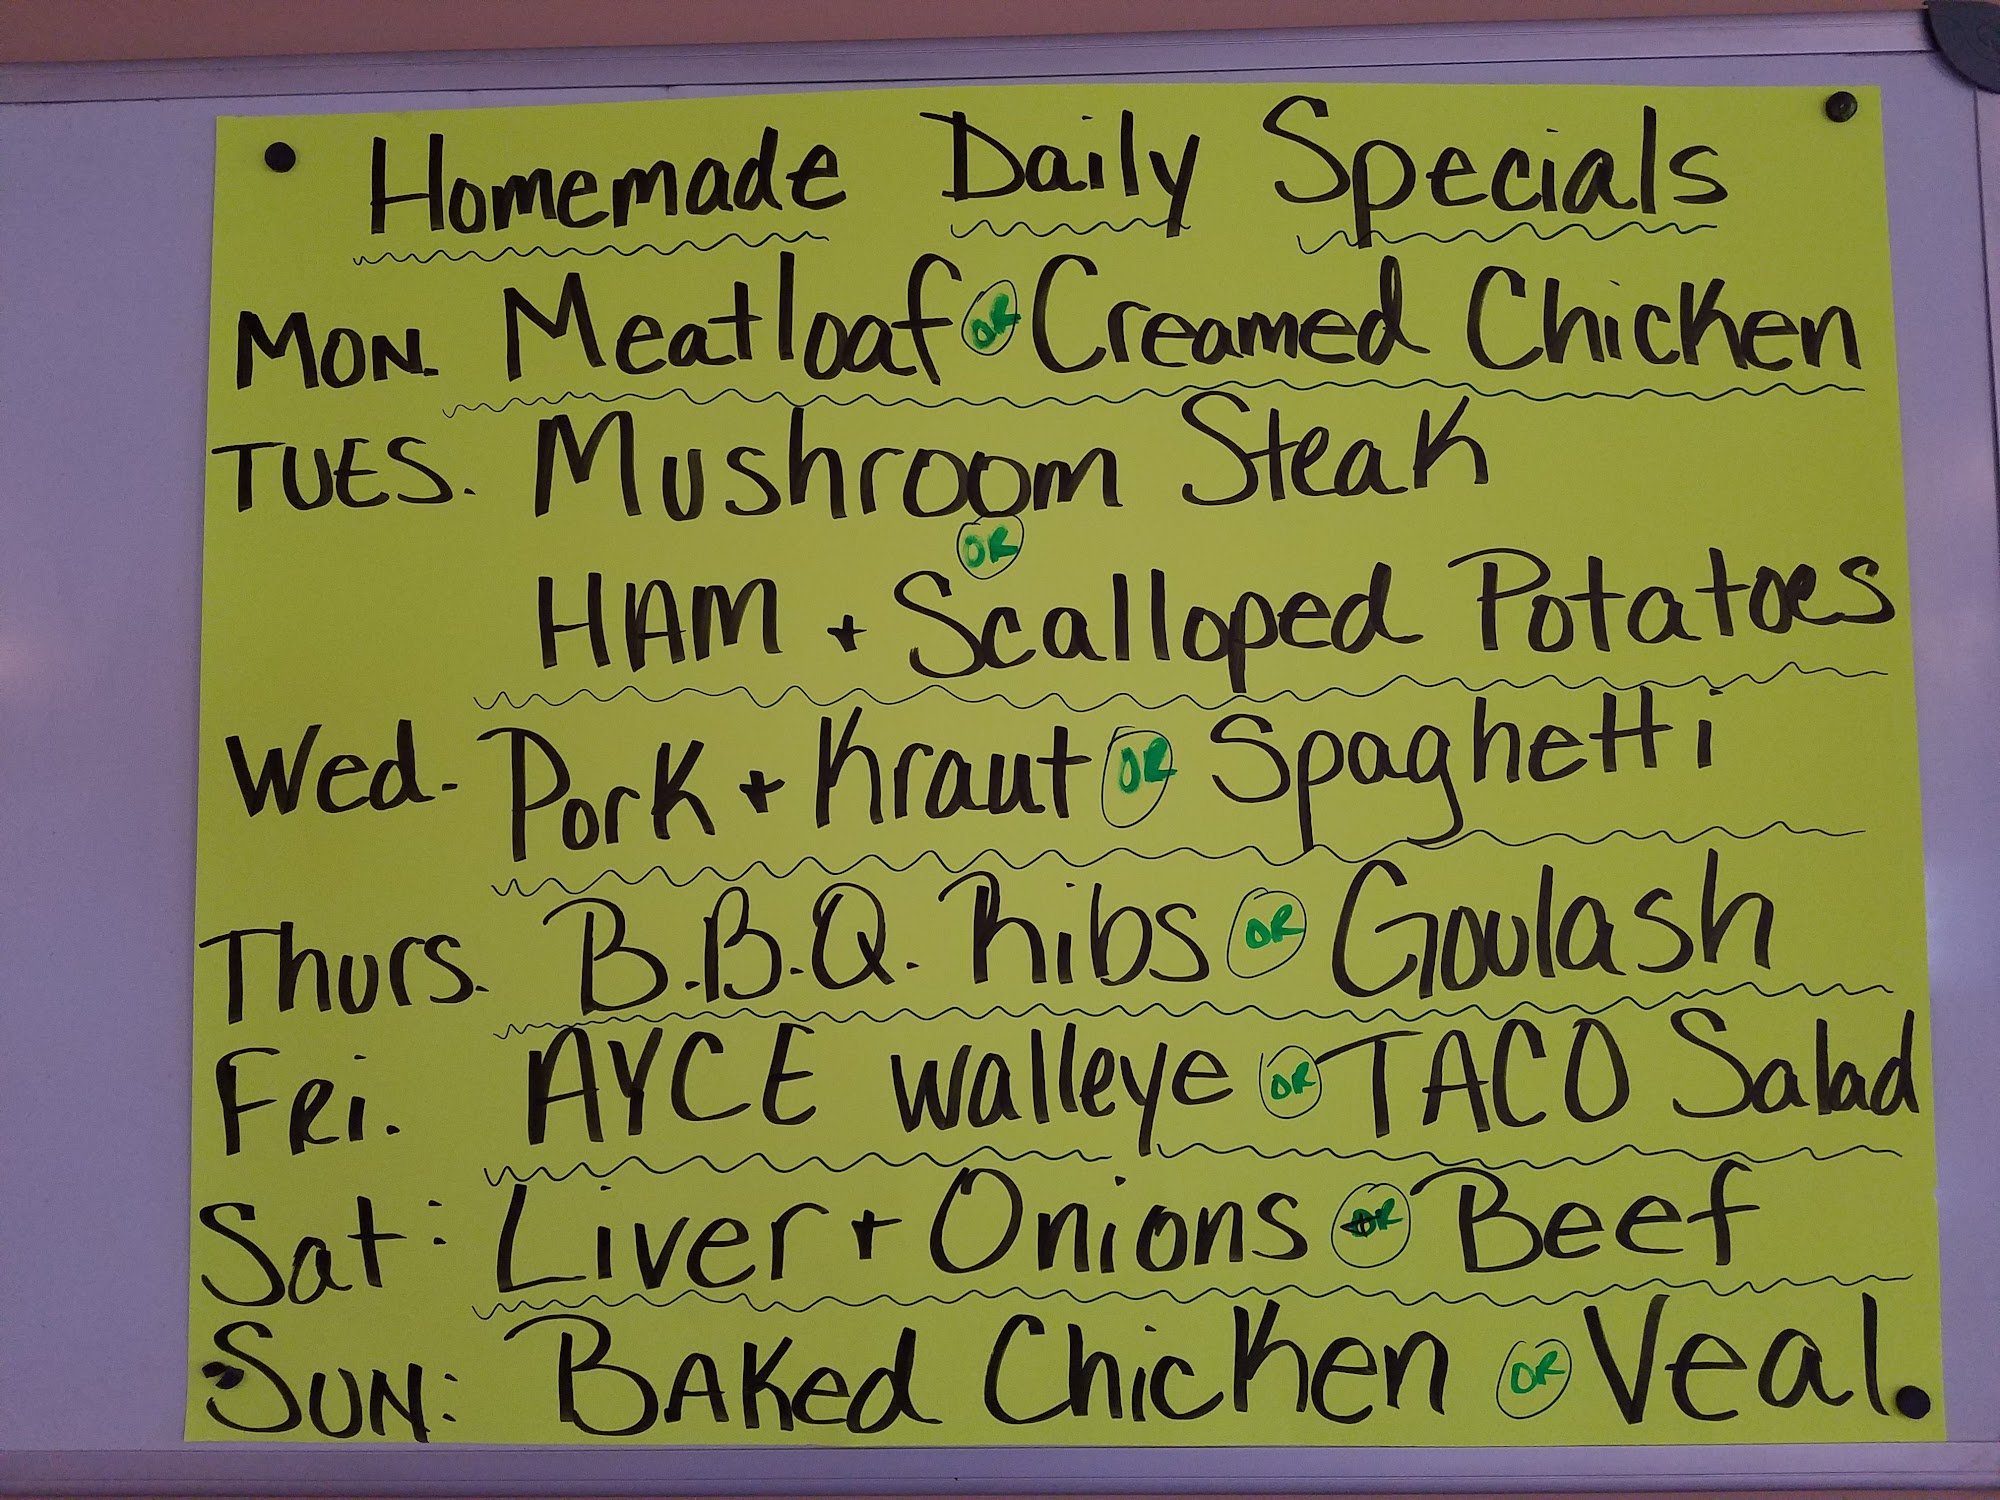 Homemade Daily Specials
MON. Meatloaf OR Creamed Chicken
TUES. Mushroom Steak
OR
HAM + Scalloped Potatoes
Wed. Pork + Kraut OR Spaghetti
Thurs. B.B.Q. Ribs OR Goulash
FRi. AYCE Walleye OR TACO Salad
Sat: Liver + Onions OR Beef
SUN: BAKed Chicken OR Veal.